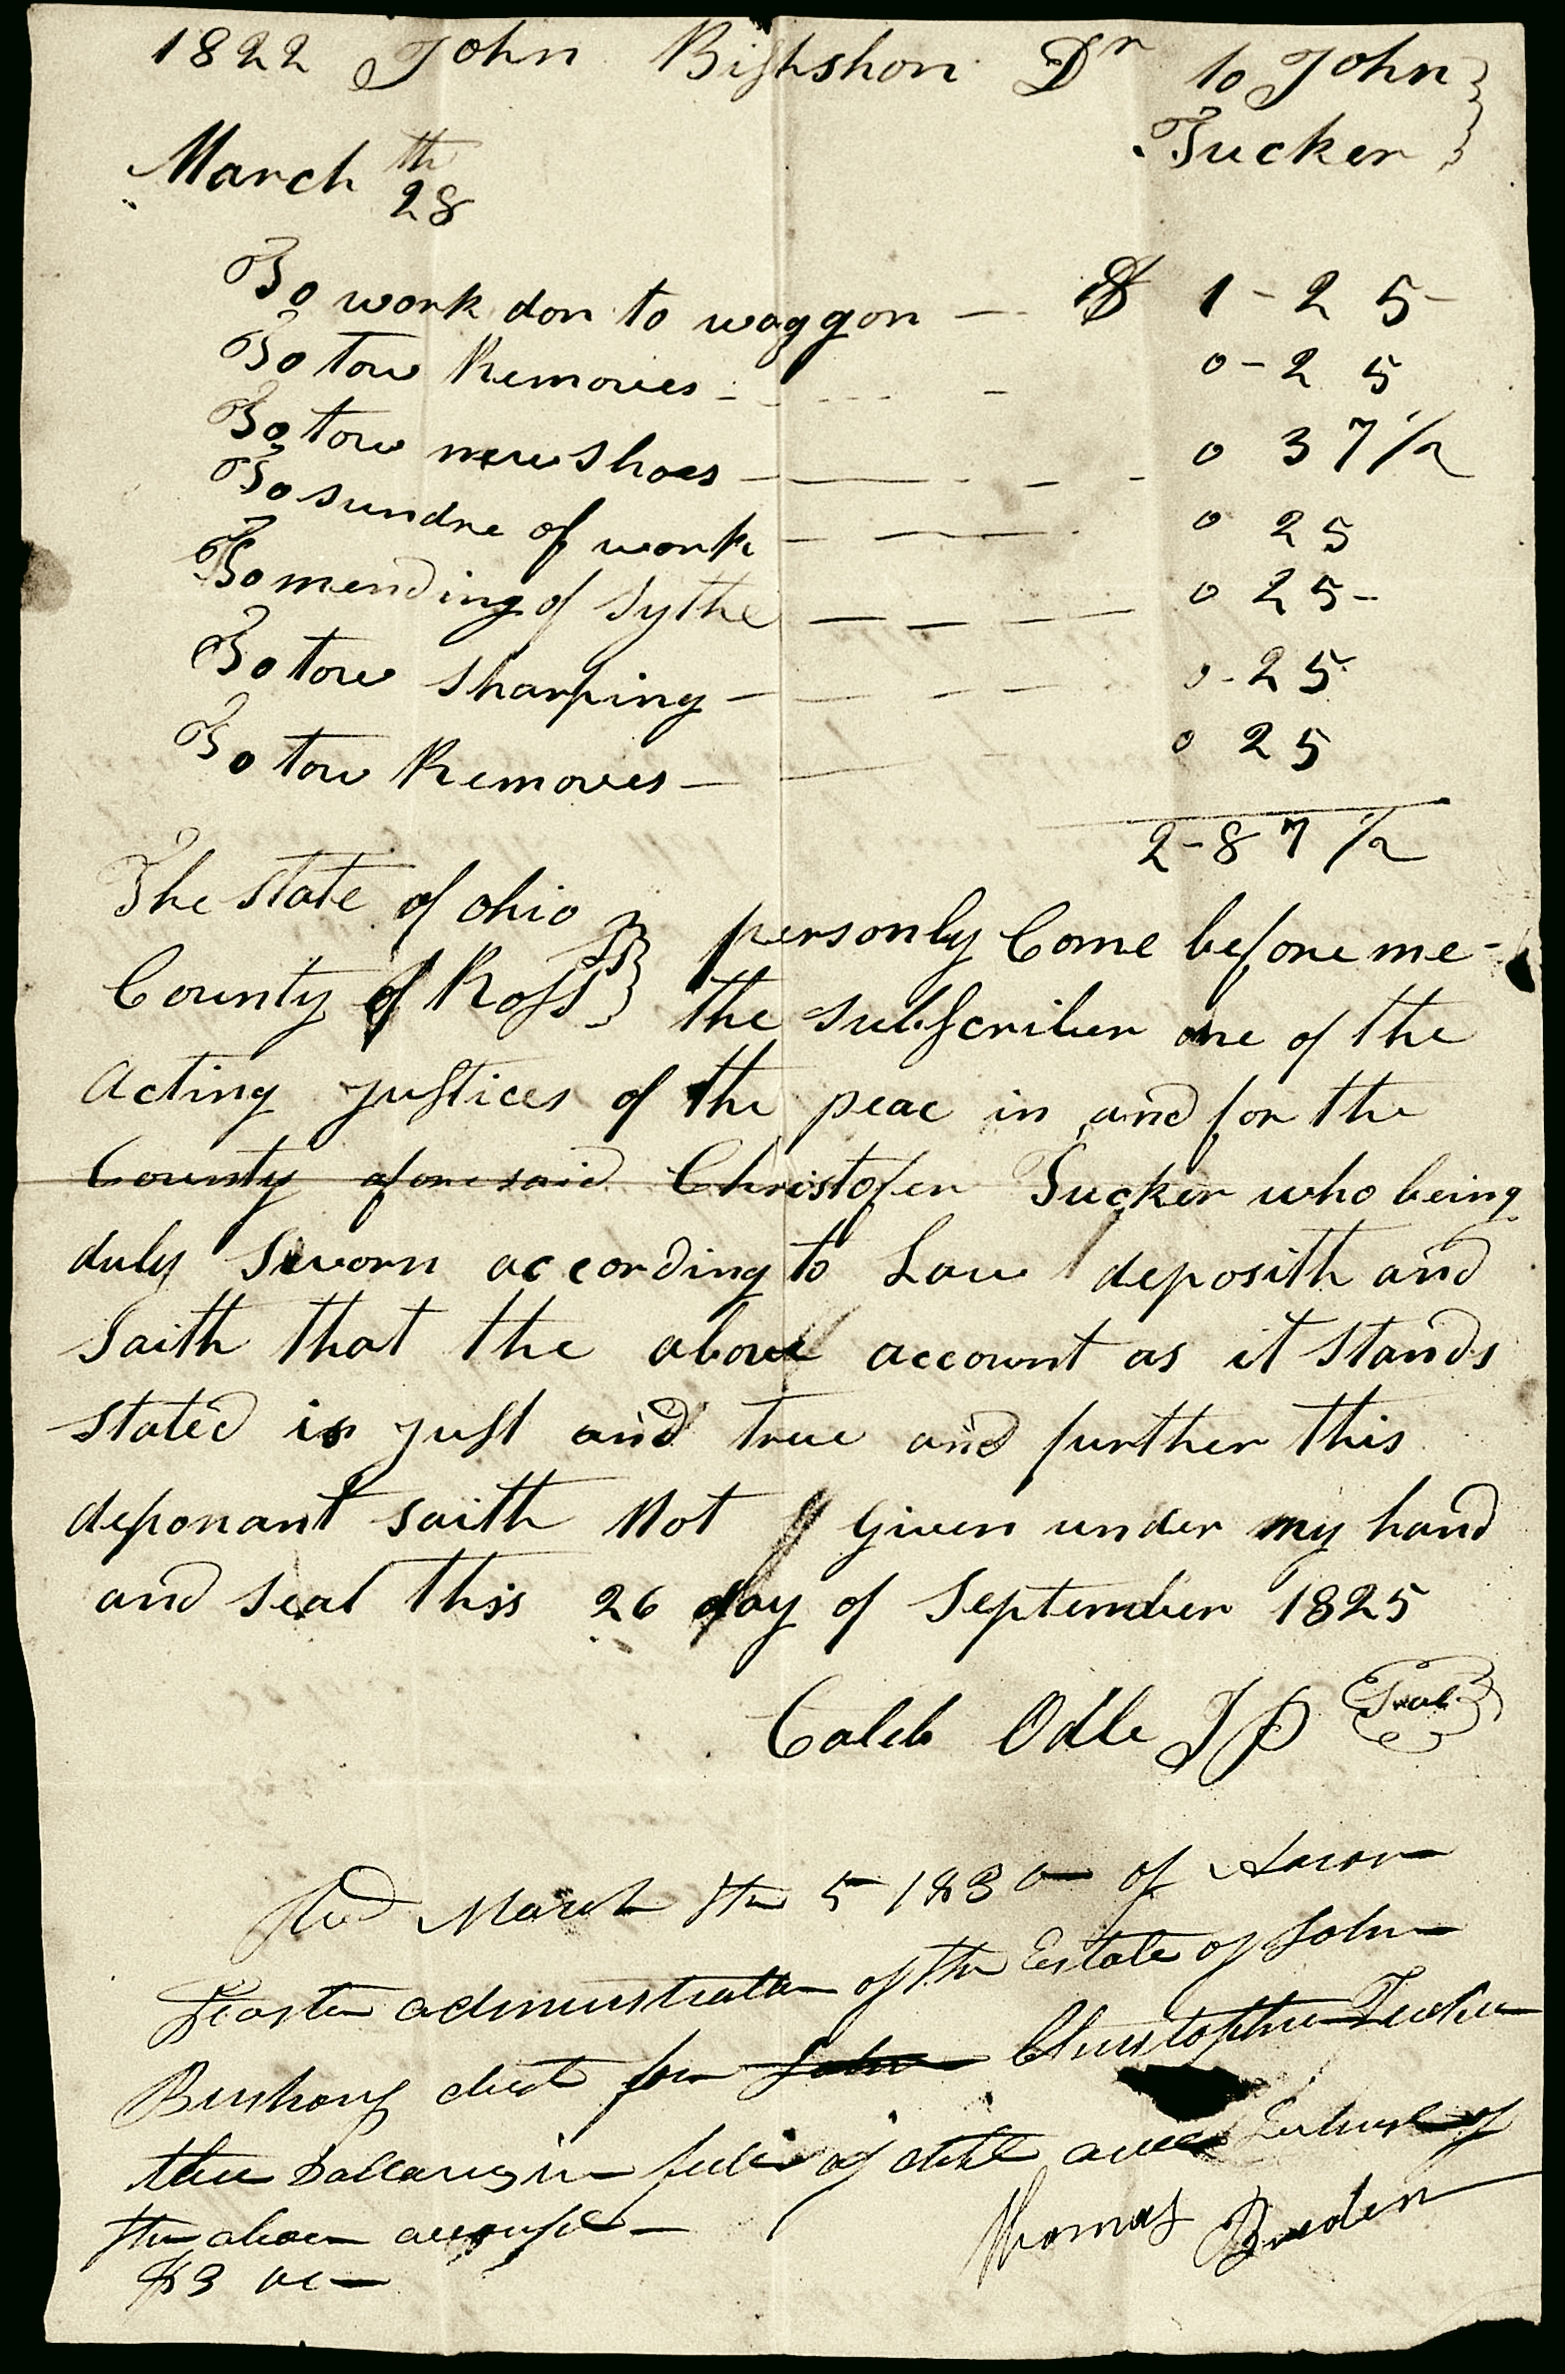 1822 John Bishshon Dr to John
Tucker
March 28th
To work don to waggon — $ 1-25-
To tow Removes - 0-25
To tow new Shoes — 0 37 1/2
To sundre of work — 0 25
To mending of Sythe — 0 25-
To tow Sharping — 0-25
To tow Removes — 0 25
2-87 1/2
The State of Ohio
County of Ross } SS personly Come before me-
the subscriber one of the
Acting justices of the peac in and for the
County aforesaid Christofer Tucker who being
duly Sworn according to Law deposith and
Saith that the above account as it Stands
Stated is just and true and further this
deponant saith Not Given under my hand
and seal this 26 day of September 1825
Caleb Odle JP Seal
Recd March the 5 1830 of Aaron
administrator of the Estate of John
Bushong for John Christopher Tucker
three Dollars in full of
the above account —
$3 00 —
Thomas Breden